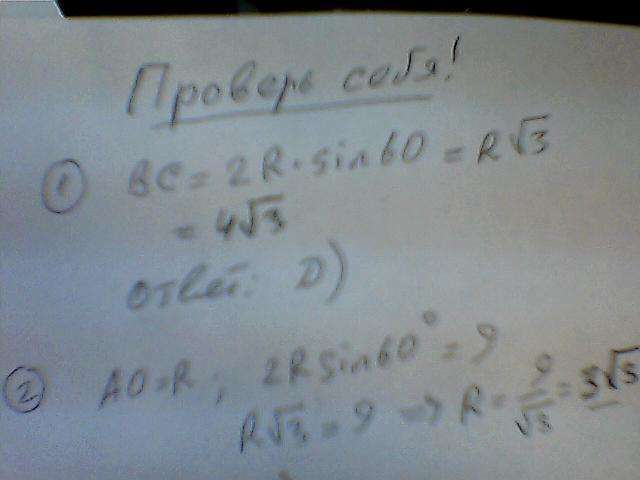 Проверь себя!
① BC = 2R · sin 60 = R√3
= 4√3
ответ: D)
② AO = R ; 2R sin 60° = 9
R√3 = 9 => R = 9/√3 = 3√3